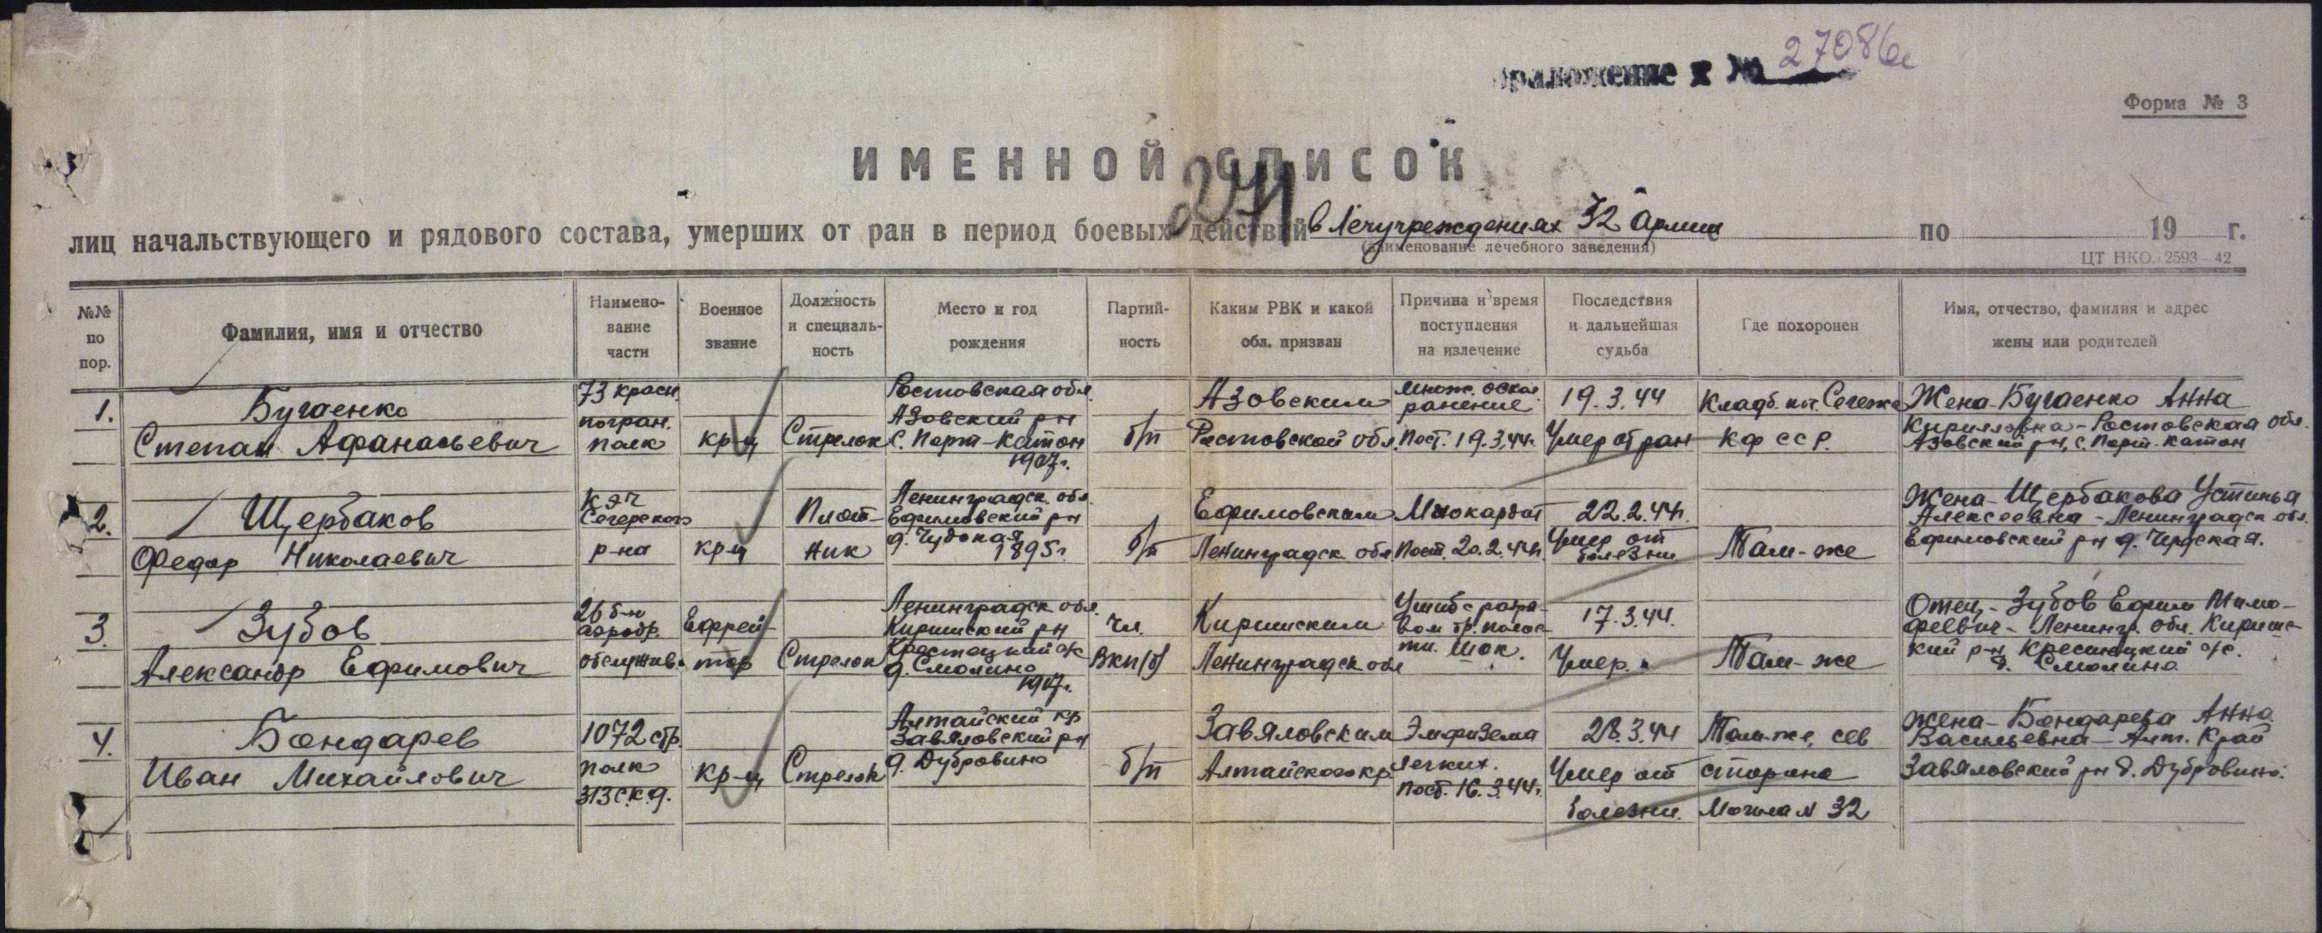 Приложение к № 27086с
Форма № 3
ИМЕННОЙ СПИСОК
241
лиц начальствующего и рядового состава, умерших от ран в период боевых действий в Лечучреждениях 32 Армии по 19 г.
(наименование лечебного заведения)
ЦТ НКО. 2593—42
№№ по пор.
Фамилия, имя и отчество
Наимено-
вание
части
Военное
звание
Должность
и специаль-
ность
Место и год
рождения
Партий-
ность
Каким РВК и какой
обл. призван
Причина и время
поступления
на излечение
Последствия
и дальнейшая
судьба
Где похоронен
Имя, отчество, фамилия и адрес
жены или родителей
1.
Бугаенко
Степан Афанасьевич
73 красн.
погран.
полк
кр-ц
Стрелок
Ростовская обл.
Азовский р-н
С. Порт-Катон
1907г.
б/п
Азовским
Ростовской обл.
множ. оскол.
ранение
Пост. 19.3.44г.
19.3.44
Умер от ран
Кладб. пос. Сегежа
КФССР.
Жена-Бугаенко Анна
Кирилловна-Ростовская обл.
Азовский р-н, с. Порт-Катон
2.
Щербаков
Федор Николаевич
КЭЧ
Сегежского
р-на
кр-ц
Плот-
ник
Ленинградск. обл.
Ефимовский р-н
д. Чудская
1895г.
б/п
Ефимовским
Ленинградск. обл.
Миокардит
Пост. 20.2.44г.
22.2.44г.
Умер от
болезни
Там-же
Жена-Щербакова Устинья
Алексеевна-Ленинградск. обл.
Ефимовский р-н д. Чудская.
3.
Зубов
Александр Ефимович
26 б-н
аэродр.
обслужив.
Ефрей-
тор
Стрелок
Ленинградск. обл.
Киришский р-н
д. Смолино
1917г.
Чл.
ВКП/б/
Киришским
Ленинградск. обл
Ушиб с разры-
вом бр. полос-
ти. Шок.
17.3.44.
Умер.
Там-же
Отец-Зубов Ефим Тимо-
феевич-Ленингр. обл. Киришс-
кий р-н Крестецкий с/с.
д. Смолино
4.
Бондарев
Иван Михайлович
1072 стр.
полк
313 с.к.д.
кр-ц
Стрелок
Алтайский кр
Завяловский р-н
д. Дубровино
б/п
Завяловским
Алтайского кр.
Эмфизема
легких.
Пост. 16.3.44г.
28.3.44
Умер от
болезни.
Там-же, сев
сторона
Могила N 32
Жена-Бондарева Анна
Васильевна-Алт. Край
Завяловский р-н д. Дубровино.